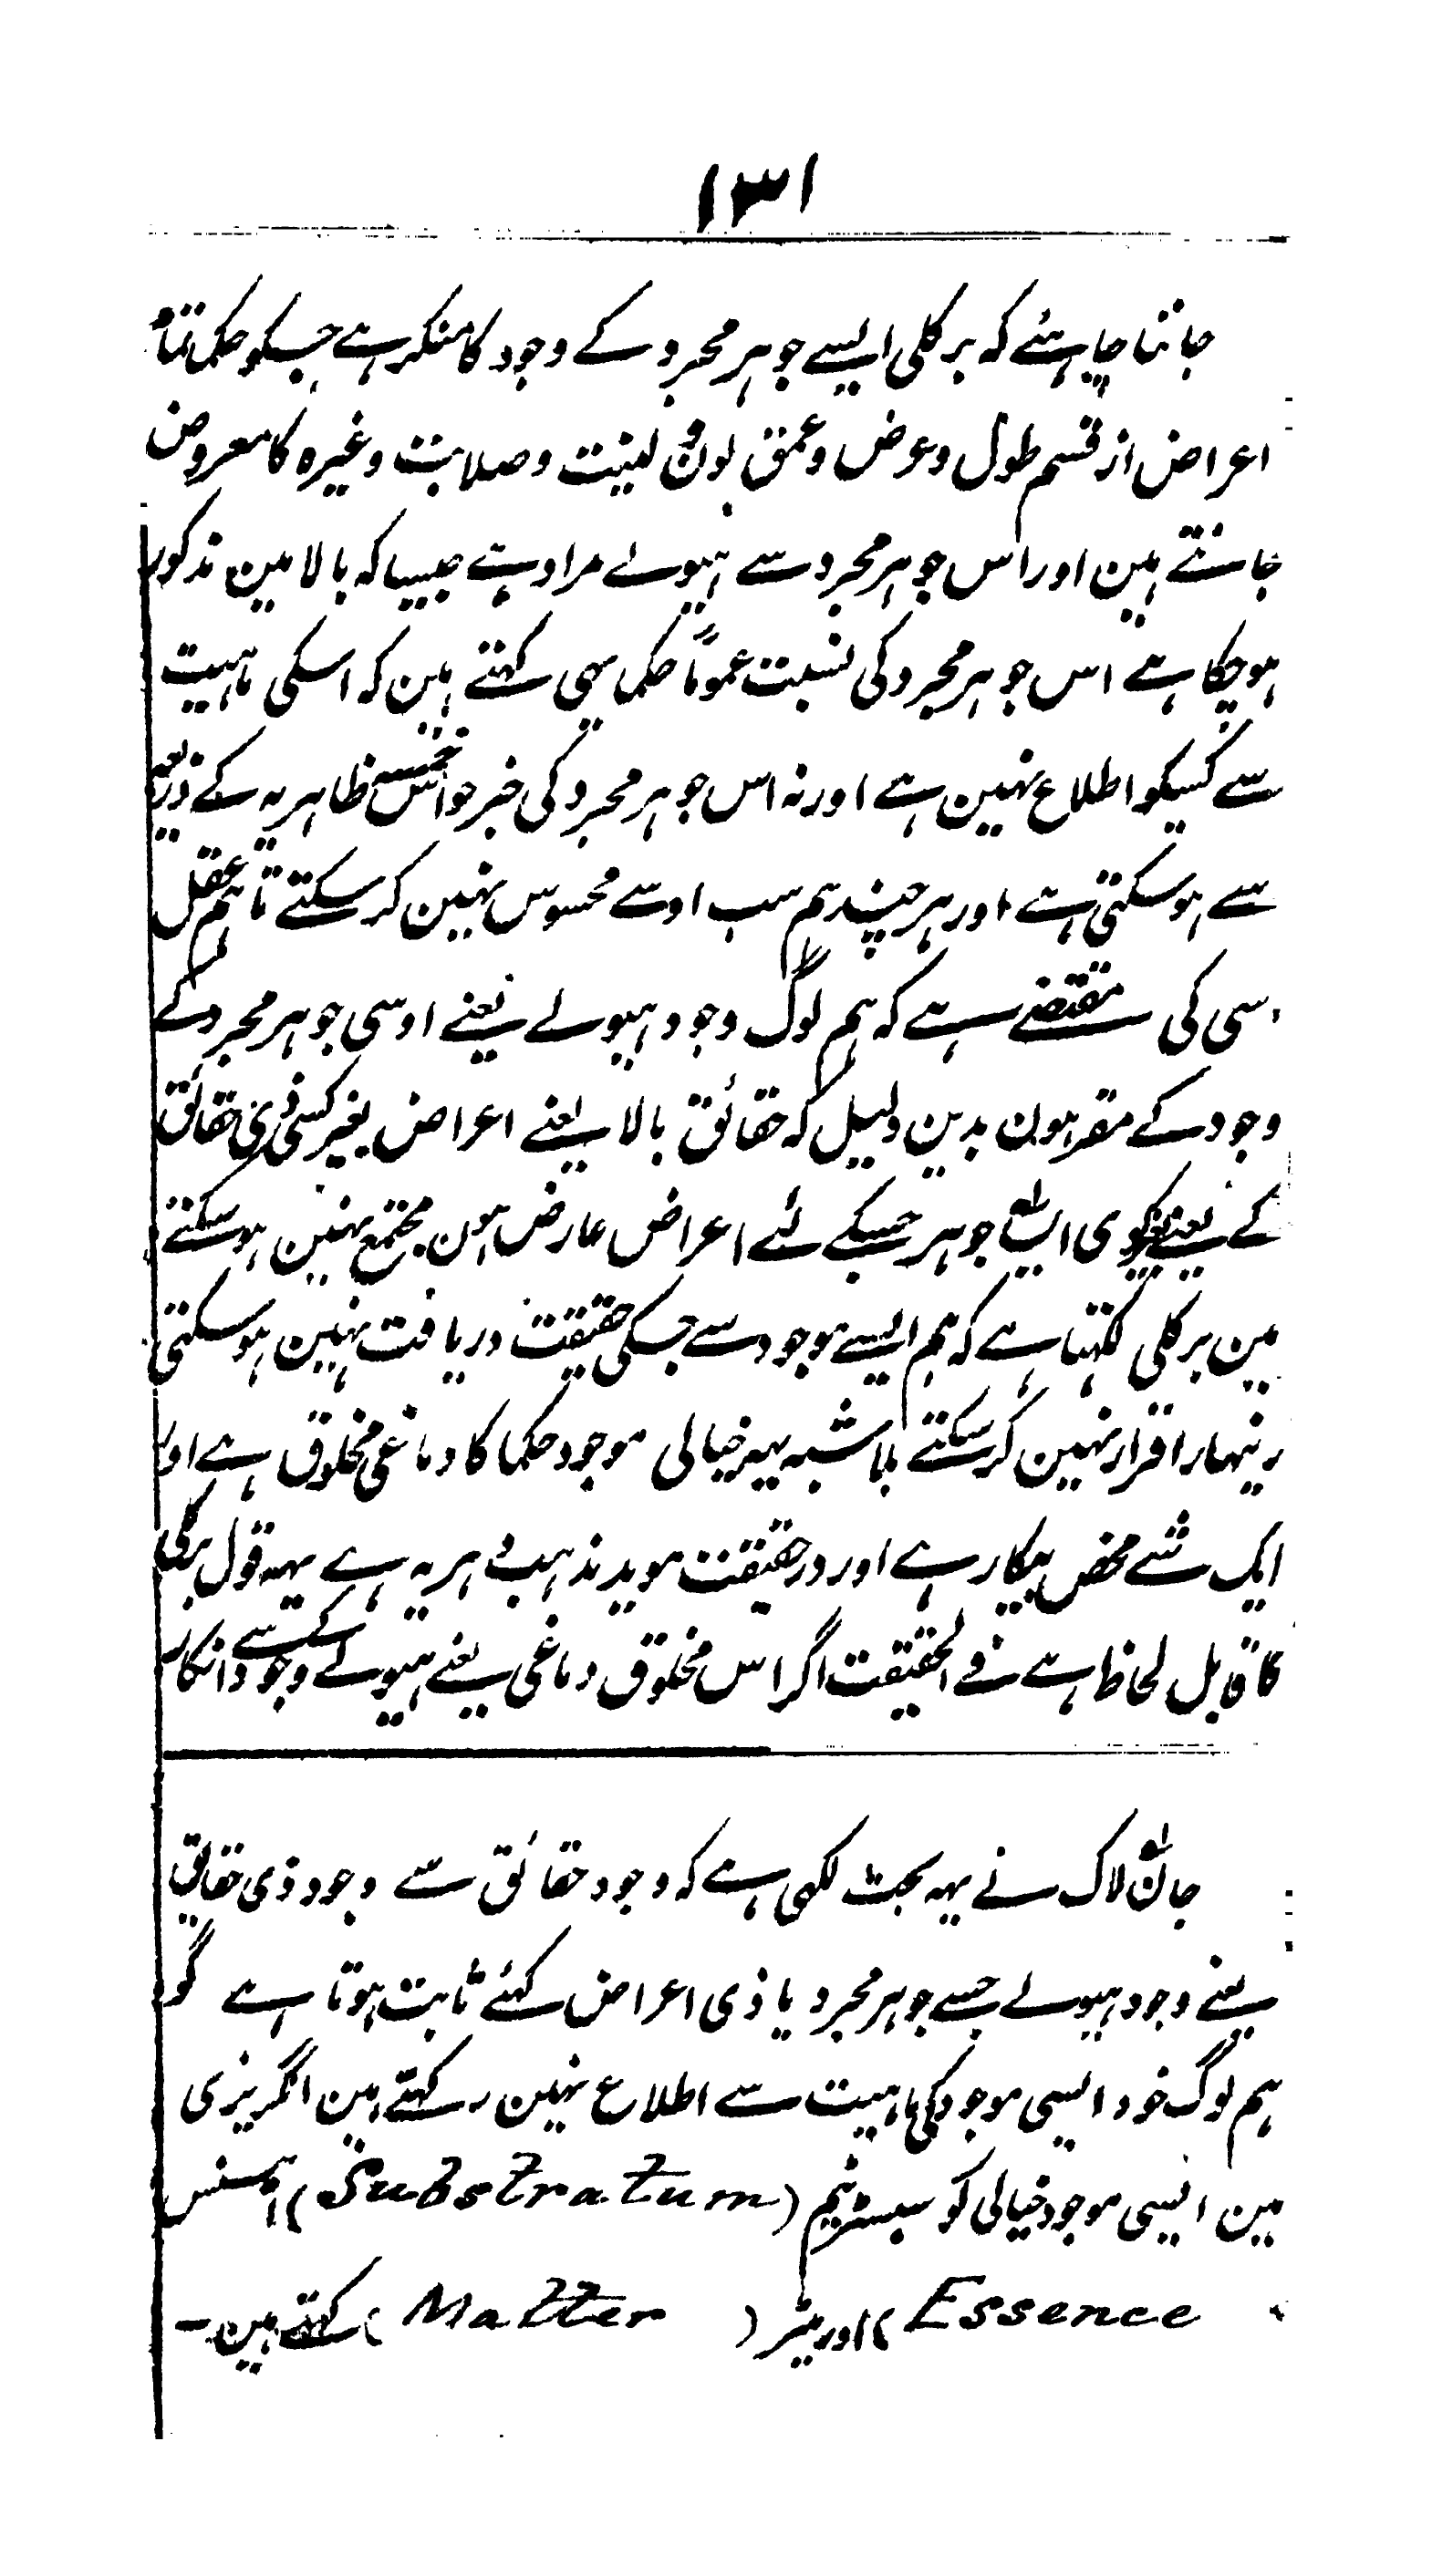 ۱۳۱
جاننا چاہئے کہ برکلی ایسے جوہر مجرد کے وجود کا منکر ہے جسکو حکما تمام
اعراض از قسم طول و عرض و عمق لون و لینیت و صلابت و غیرہ کا معروض
جانتے ہین اور اس جوہر مجرد سے ہیولے مراد ہے جیسا کہ بالا مین مذکور
ہو چکا ہے اس جوہر مجرد کی نسبت عموماً حکما یہی کہتے ہین کہ اسکی ماہیت
سے کسیکو اطلاع نہین ہے اور نہ اس جوہر مجرد کی خبر حواس خمسہ ظاہریہ کے ذریعہ
سے ہو سکتی ہے اور ہر چند ہم سب اوسے محسوس نہین کر سکتے تاہم عقل
سی کی مقتضے ہے کہ ہم لوگ وجود ہیولے یعنے اوسی جوہر مجرد کے
وجود کے مقر ہون بدین دلیل کہ حقائق بالا یعنے اعراض بغیر کسی ذی حقائق
کے یعنے بغیر کوی ایسا جوہر جسکے لئے اعراض عارض ہون مجتمع نہین ہو سکتے
مین برکلی کہتا ہے کہ ہم ایسے موجود سے جسکی حقیقت دریافت نہین ہو سکتی
زینہار اقرار نہین کر سکتے بلا شبہ یہہ خیالی موجود حکما کا دماغی مخلوق ہے اور
ایک شے محض بیکار ہے اور در حقیقت موید مذہب دہریہ ہے یہہ قول برکلی
کا قابل لحاظ ہے فے الحقیقت اگر اس مخلوق دماغی یعنے ہیولے کے وجود سے انکار
جان لاک نے یہہ بحث لکھی ہے کہ وجود حقائق سے وجود ذی حقایق
یعنے وجود ہیولے جسے جوہر مجرد یا ذی اعراض کہئے ثابت ہوتا ہے گو
ہم لوگ خود ایسی موجود کی ماہیت سے اطلاع نہین رکہتے ہین انگریزی
مین ایسی موجود خیالی کو سبسٹریٹم (Substratum) اسنس
(Essence) اور میٹر (Matter) کہتے ہین -